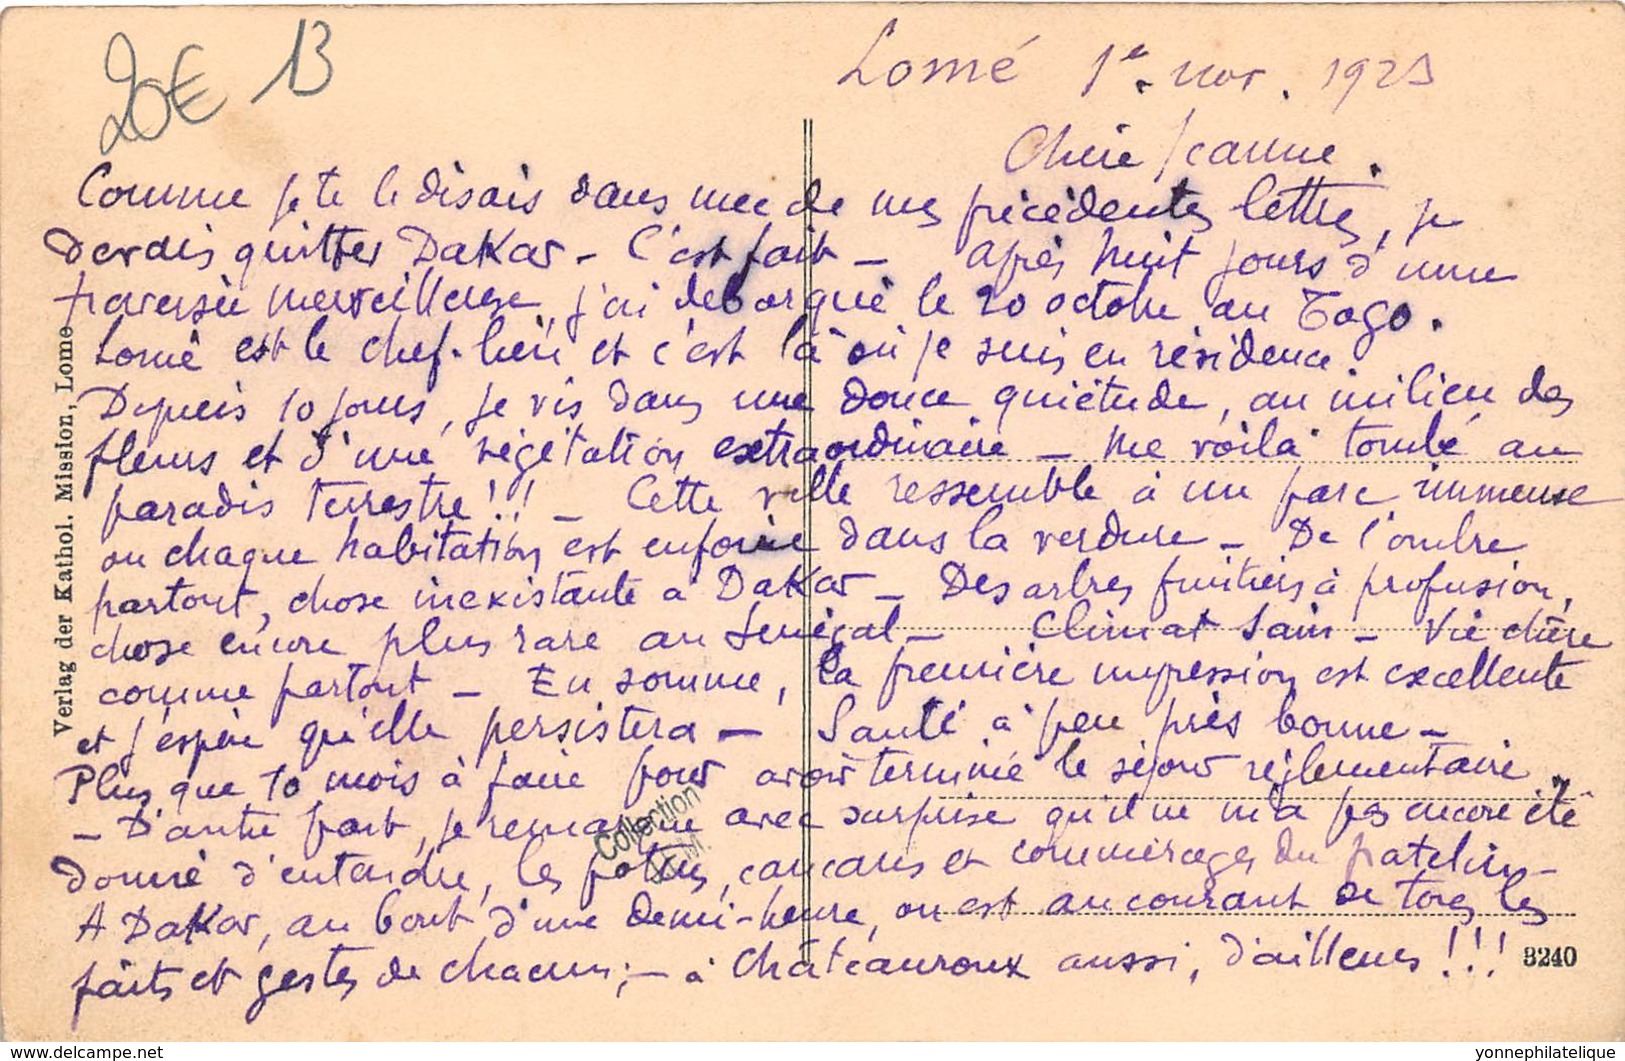 20€ 13
Lomé 1er nov. 1923
Chère Jeanne.
Comme je te le disais dans une de mes précédentes lettres, je
devais quitter Dakar – C'est fait – Après huit jours d'une
traversée merveilleuse, j'ai debarqué le 20 octobre au Togo.
Lomé est le chef-lieu et c'est là où je suis en résidence.
Depuis 10 jours, je vis dans une douce quiétude, au milieu des
fleurs et d'une végétation extraordinaire – Me voilà tombé au
paradis terrestre!! – Cette ville ressemble à un parc immense
ou chaque habitation est enfouie dans la verdure – De l'ombre
partout, chose inexistante à Dakar – Des arbres fruitiers à profusion,
chose encore plus rare au Sénégal – Climat sain – Vie chère
comme partout – En somme, la première impression est excellente
et j'espère qu'elle persistera – Santé à peu près bonne –
Plus que 10 mois à faire pour avoir terminé le séjour réglementaire.
– D'autre part, je remarque avec surprise qu'il ne m'a pas encore été
donné d'entendre, les potins, cancans et commérages du patelin –
A Dakar, au bout d'une demi-heure, on est au courant de tous les
faits et gestes de chacun; – à Châteauroux aussi, d'ailleurs!!!
Verlag der Kathol. Mission, Lome
Collection
3240
yonnephilatelique
https://www.delcampe.net